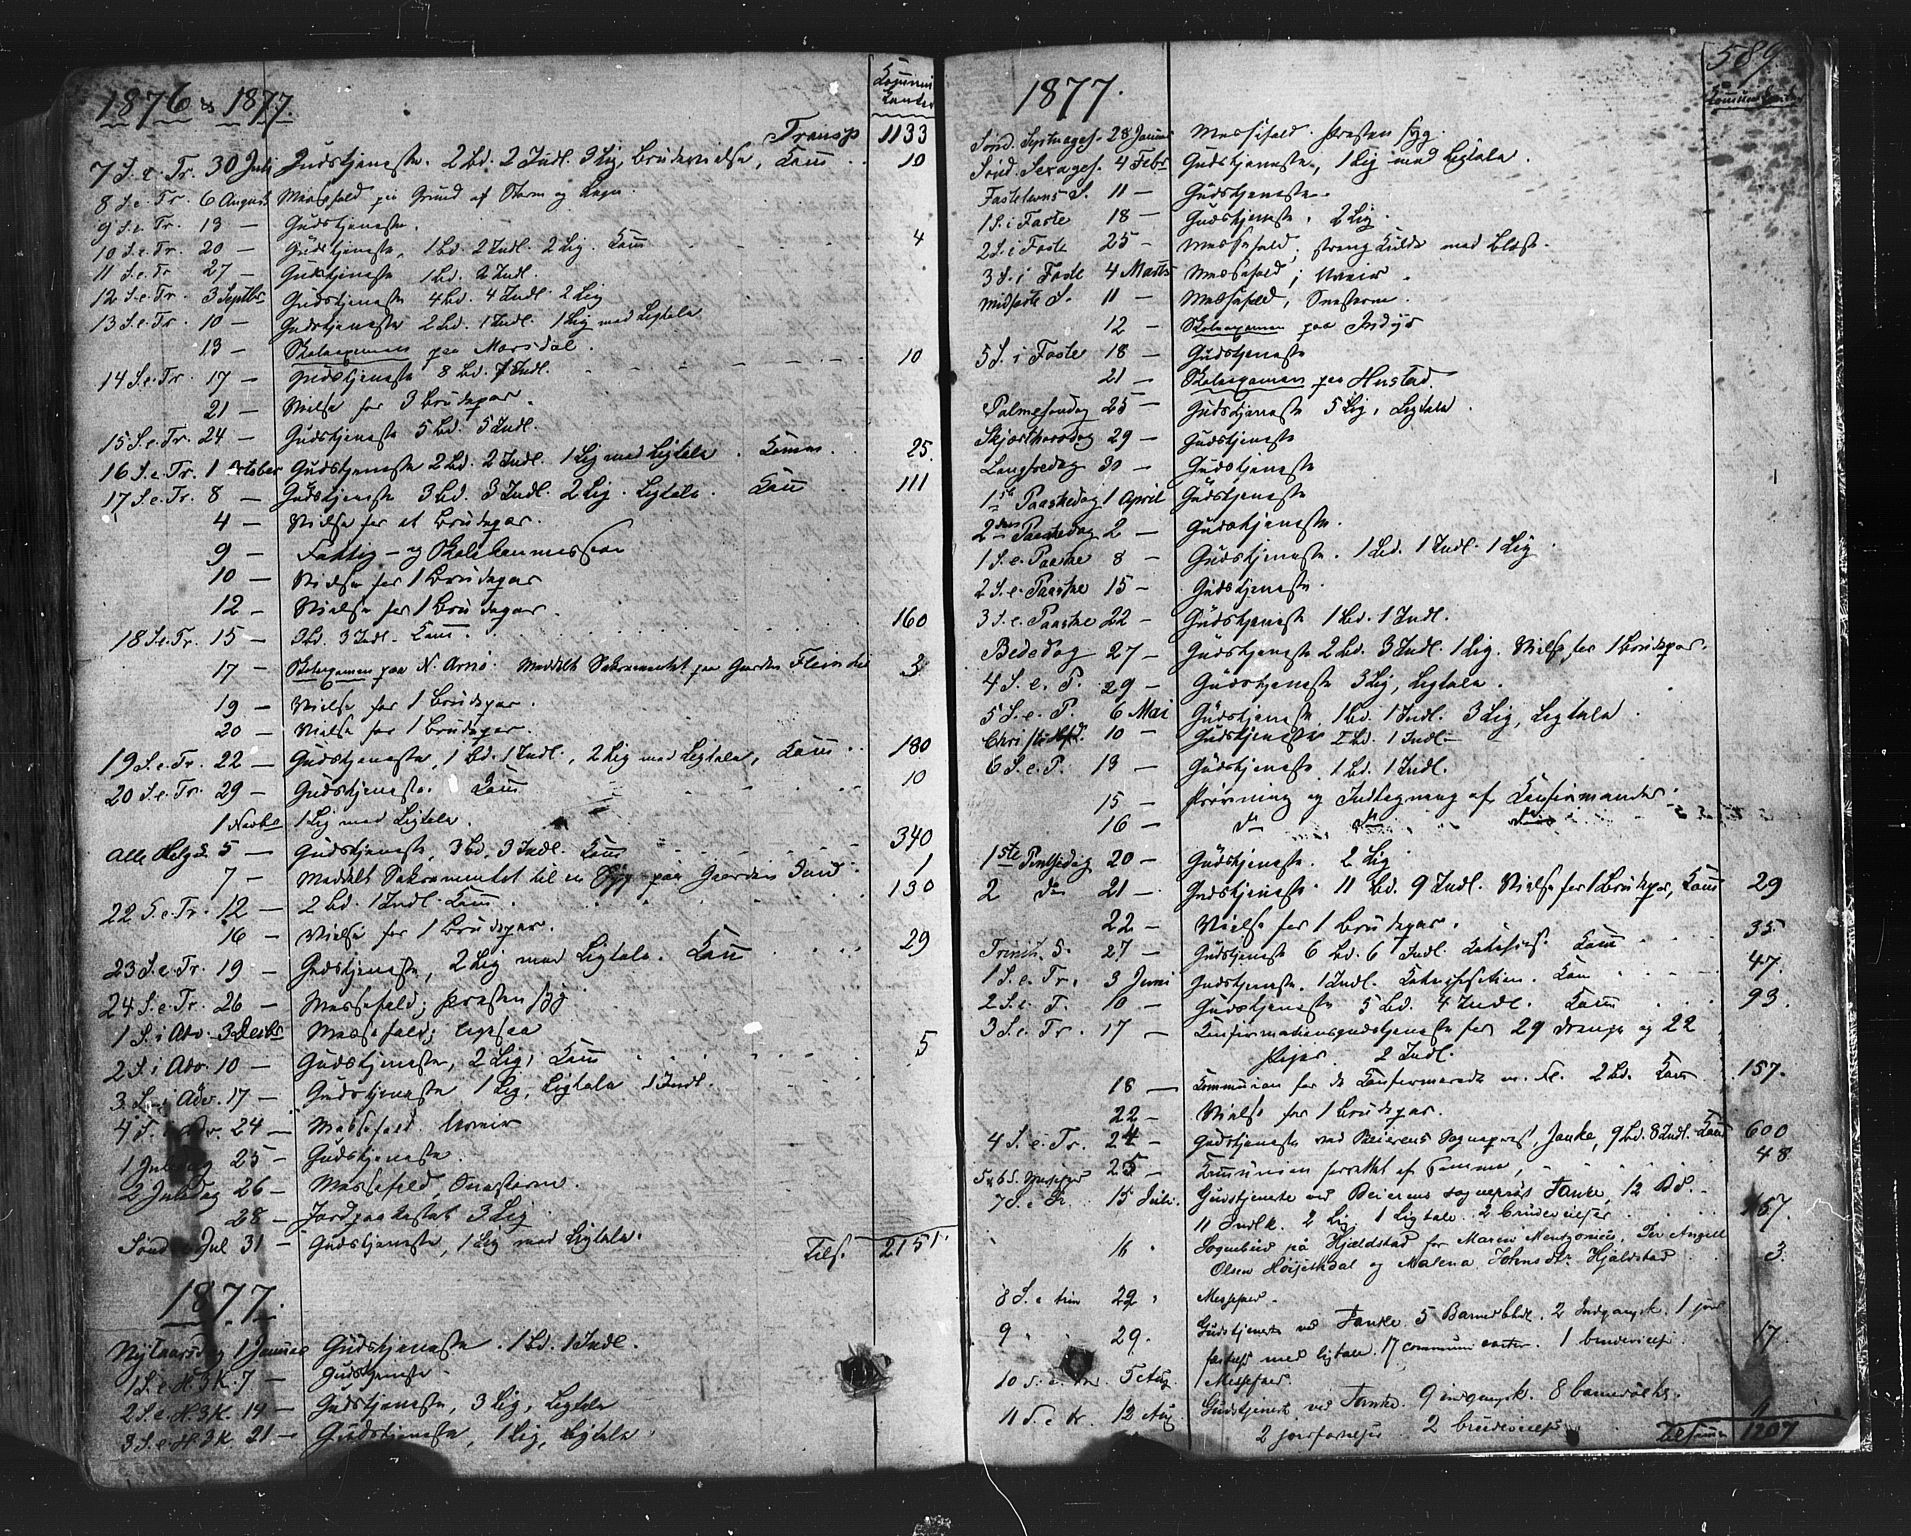 1876 & 1877.
Transp 1133
7 S. e. Tr. 30 Juli Gudstjeneste. 2 Bd. 2 Indl. 3 Lig, Brudevielse, Com 10
8 S. e. Tr. 6 August Messefald paa Grund af Storm og Regn.
9 S. e. Tr. 13 — Gudstjeneste.
10 S. e. Tr. 20 — Gudstjeneste, 1 Bd. 2 Indl. 2 Lig. Com 4
11 S. e. Tr 27 — Gudstjeneste 1 Bd. 2 Indl.
12 S. e. Tr. 3 Septbr Gudstjeneste 4 Bd. 4 Indl. 2 Lig
13 S. e. Tr. 10 — Gudstjeneste 2 Bd. 1 Indl. 1 Lig med Ligtale
13 — Skoleexamen paa Marsdal.
14 S. e. Tr. 17 — Gudstjeneste 8 Bd. 7 Indl. 10
21 — Vielse for 3 Brudepar.
15 S. e. Tr. 24 — Gudstjeneste 5 Bd. 5 Indl.
16 S. e. Tr. 1 October Gudstjeneste 2 Bd. 2 Indl. 1 Lig med Ligtale. Comm. 25.
17 S. e. Tr. 8 — Gudstjeneste 3 Bd. 3 Indl. 2 Lig. Ligtale. Com 111
4 — Vielse for et Brudepar.
9 — Fattig- og Skolekommission
10 — Vielse for 1 Brudepar
12 — Vielse for 1 Brudepar.
18 S. e. Tr. 15 — Bd. 3 Indl. Com. 160
17 — Skoleexamen paa N. Arnø. Meddelt Sakramentet paa Gaarden 3
19 — Vielse for 1 Brudepar.
20 — Vielse for 1 Brudepar.
19 S. e. Tr. 22 — Gudstjeneste, 1 Bd. 1 Indl., 2 Lig med Ligtale, Com 180
20 S. e. Tr. 29 — Gudstjeneste. Com 10
1 Novbr 1 Lig med Ligtale.
Alle Helg. S. 5 — Gudstjeneste, 3 Bd. 3 Indl. Com 340
7 — Meddelt Sakramentet til en Syg paa Gaarden Sund 1
22 S. e. Tr. 12 — 2 Bd. 1 Indl. Com. 130
16 — Vielse for 1 Brudepar.
23 S. e. Tr. 19 — Gudstjeneste, 2 Lig med Ligtale. Com 29
24 S. e. Tr. 26 — Messefald; Præsten syg
1 S. i Adv. 3 Decbr Messefald;
2 S. i Adv. 10 — Gudstjeneste, 2 Lig; Com 5
3 S. i Adv. 17 — Gudstjeneste 1 Lig, Ligtale 1 Indl.
4 S. i Adv. 24 — Messefald. Uveir
1 Juledag 25 — Gudstjeneste.
2 Juledag 26 — Messefald, Snestorm.
28 — Jordpaakastet 3 Lig
Sønd. Jul 31 — Gudstjeneste, 1 Lig med Ligtale. Tils. 2151.
1877.
Nytaarsdag 1 Januar Gudstjeneste. 1 Bd. 1 Indl.
1 S. e. H. 3 K. 7 — Gudstjeneste
2 S. e. H. 3 K. 14 — Gudstjeneste, 3 Lig, Ligtale
3 S. e. H. 3 K. 21 — Gudstjeneste, 1 Lig, Ligtale.
1877.
589
Sønd. Septuages. 28 Januar Messefald. Præsten syg.
Sønd. Sexages. 4 Febr Gudstjeneste, 1 Lig med Ligtale.
Fastelavns S. 11 — Gudstjeneste.
1 S. i Faste 18 — Gudstjeneste. 2 Lig.
2 S. i Faste 25 — Messefald; streng Kulde med Blæst.
3 S. i Faste 4 Marts Messefald; Uveir.
Midfaste S. 11 — Messefald, Snestorm.
12 — Skoleexamen paa Indyr
5 S. i Faste 18 — Gudstjeneste
21 — Skoleexamen paa Hustad.
Palmesøndag 25 — Gudstjeneste 5 Lig, Ligtale.
Skjærthorsdag 29 — Gudstjeneste
Langfredag 30 — Gudstjeneste
1ste Paaskedag 1 April Gudstjeneste
2den Paaskedag 2 — Gudstjeneste.
1 S. e. Paaske 8 — Gudstjeneste. 1 Bd. 1 Indl. 1 Lig.
2 S. e. Paaske 15 — Gudstjeneste.
3 S. e. Paaske 22 — Gudstjeneste 1 Bd. 1 Indl.
Bededag 27 — Gudstjeneste 2 Bd. 3 Indl. 1 Lig. Vielse for 1 Brudepar.
4 S. e. P. 29 — Gudstjeneste 3 Lig, Ligtale.
5 S. e. P. 6 Mai Gudstjeneste 1 Bd. 1 Indl. 3 Lig, Ligtale.
10 — Gudstjeneste 2 Bd. 1 Indl.
6 S. e. P. 13 — Gudstjeneste 1 Bd. 1 Indl.
15 — Prøvning og Indtegning af Confirmander.
16 — do do
1ste Pintsedag 20 — Gudstjeneste. 2 Lig
2 do 21 — Gudstjeneste. 11 Bd. 9 Indl. Vielse for 1 Brudepar, Com 29
22 — Vielse for 1 Brudepar.
Trinit. S. 27 — Gudstjeneste 6 Bd. 6 Indl. Com 35
1 S. e. Tr. 3 Juni Gudstjeneste, 1 Indl. Com 47.
2 S. e. T. 10 — Gudstjeneste 5 Bd. 4 Indl. Com 93.
3 S. e. Tr. 17 — Confirmationsgudstjeneste for 29 Drenge og 22
Piger. 2 Indl.
18 — Communion for de Confirmerede m. Fl. 2 Bd. Com 157.
22 — Vielse for 1 Brudepar.
4 S. e. Tr. 24 — Gudstjeneste ved Beierens Sognepræst, Tanke, 9 Bd. 8 Indl. Com 600
25 — Communion forrettet af Samme, 48
7 S. e. Tr. 15 Juli. Gudstjeneste ved Beierens Sognepræst Tanke, 12 Bd. 167.
11 Indlk. 2 Lig 1 Ligtale. 2 brudevielser
16 Sognebud på Hjældstad for Maren Mentzonsen, Per Angell
Olsen Høisethdal og Malena Johnsdtr Hjældstad 3.
8 S. e trin 22 Messefald.
9 " 29. Gudstjeneste ved Tanke 5 Barnedåb. 2 Indgangsk. 1 jord
fæstelse med ligtale. 17 communicanter. 1 brudevielse 17.
10 S. e. tr 5 Aug. Messefald.
11 S. e tr. 12 Aug Gudstjeneste ved Tanke. 9 indgangsk. 8 barnedåb.
2 jordfæstelser 2 brudevielser Tilsammen 1207